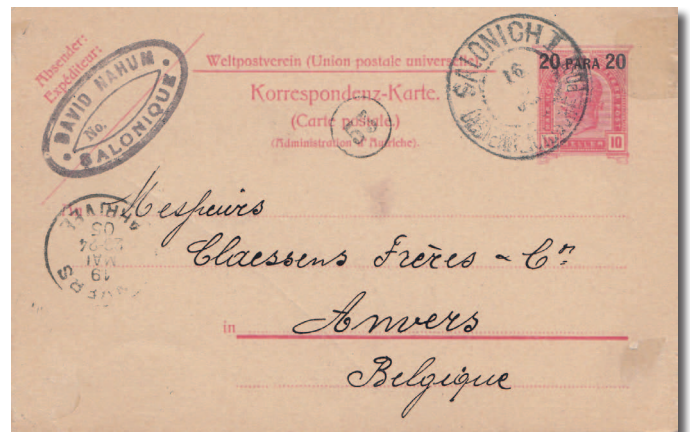 Absender:
Expéditeur:
DAVID NAHUM
No.
SALONIQUE
Weltpostverein (Union postale univers
Korrespondenz-Karte.
(Carte postale.)
(Administration d'Autriche).
SALONICH I
16
20 PARA 20
10
HELLER
An
Messieurs
Claessens Frères & Cie
in
Anvers
Belgique
ANVERS
19
MAI
05
ARRIVÉE